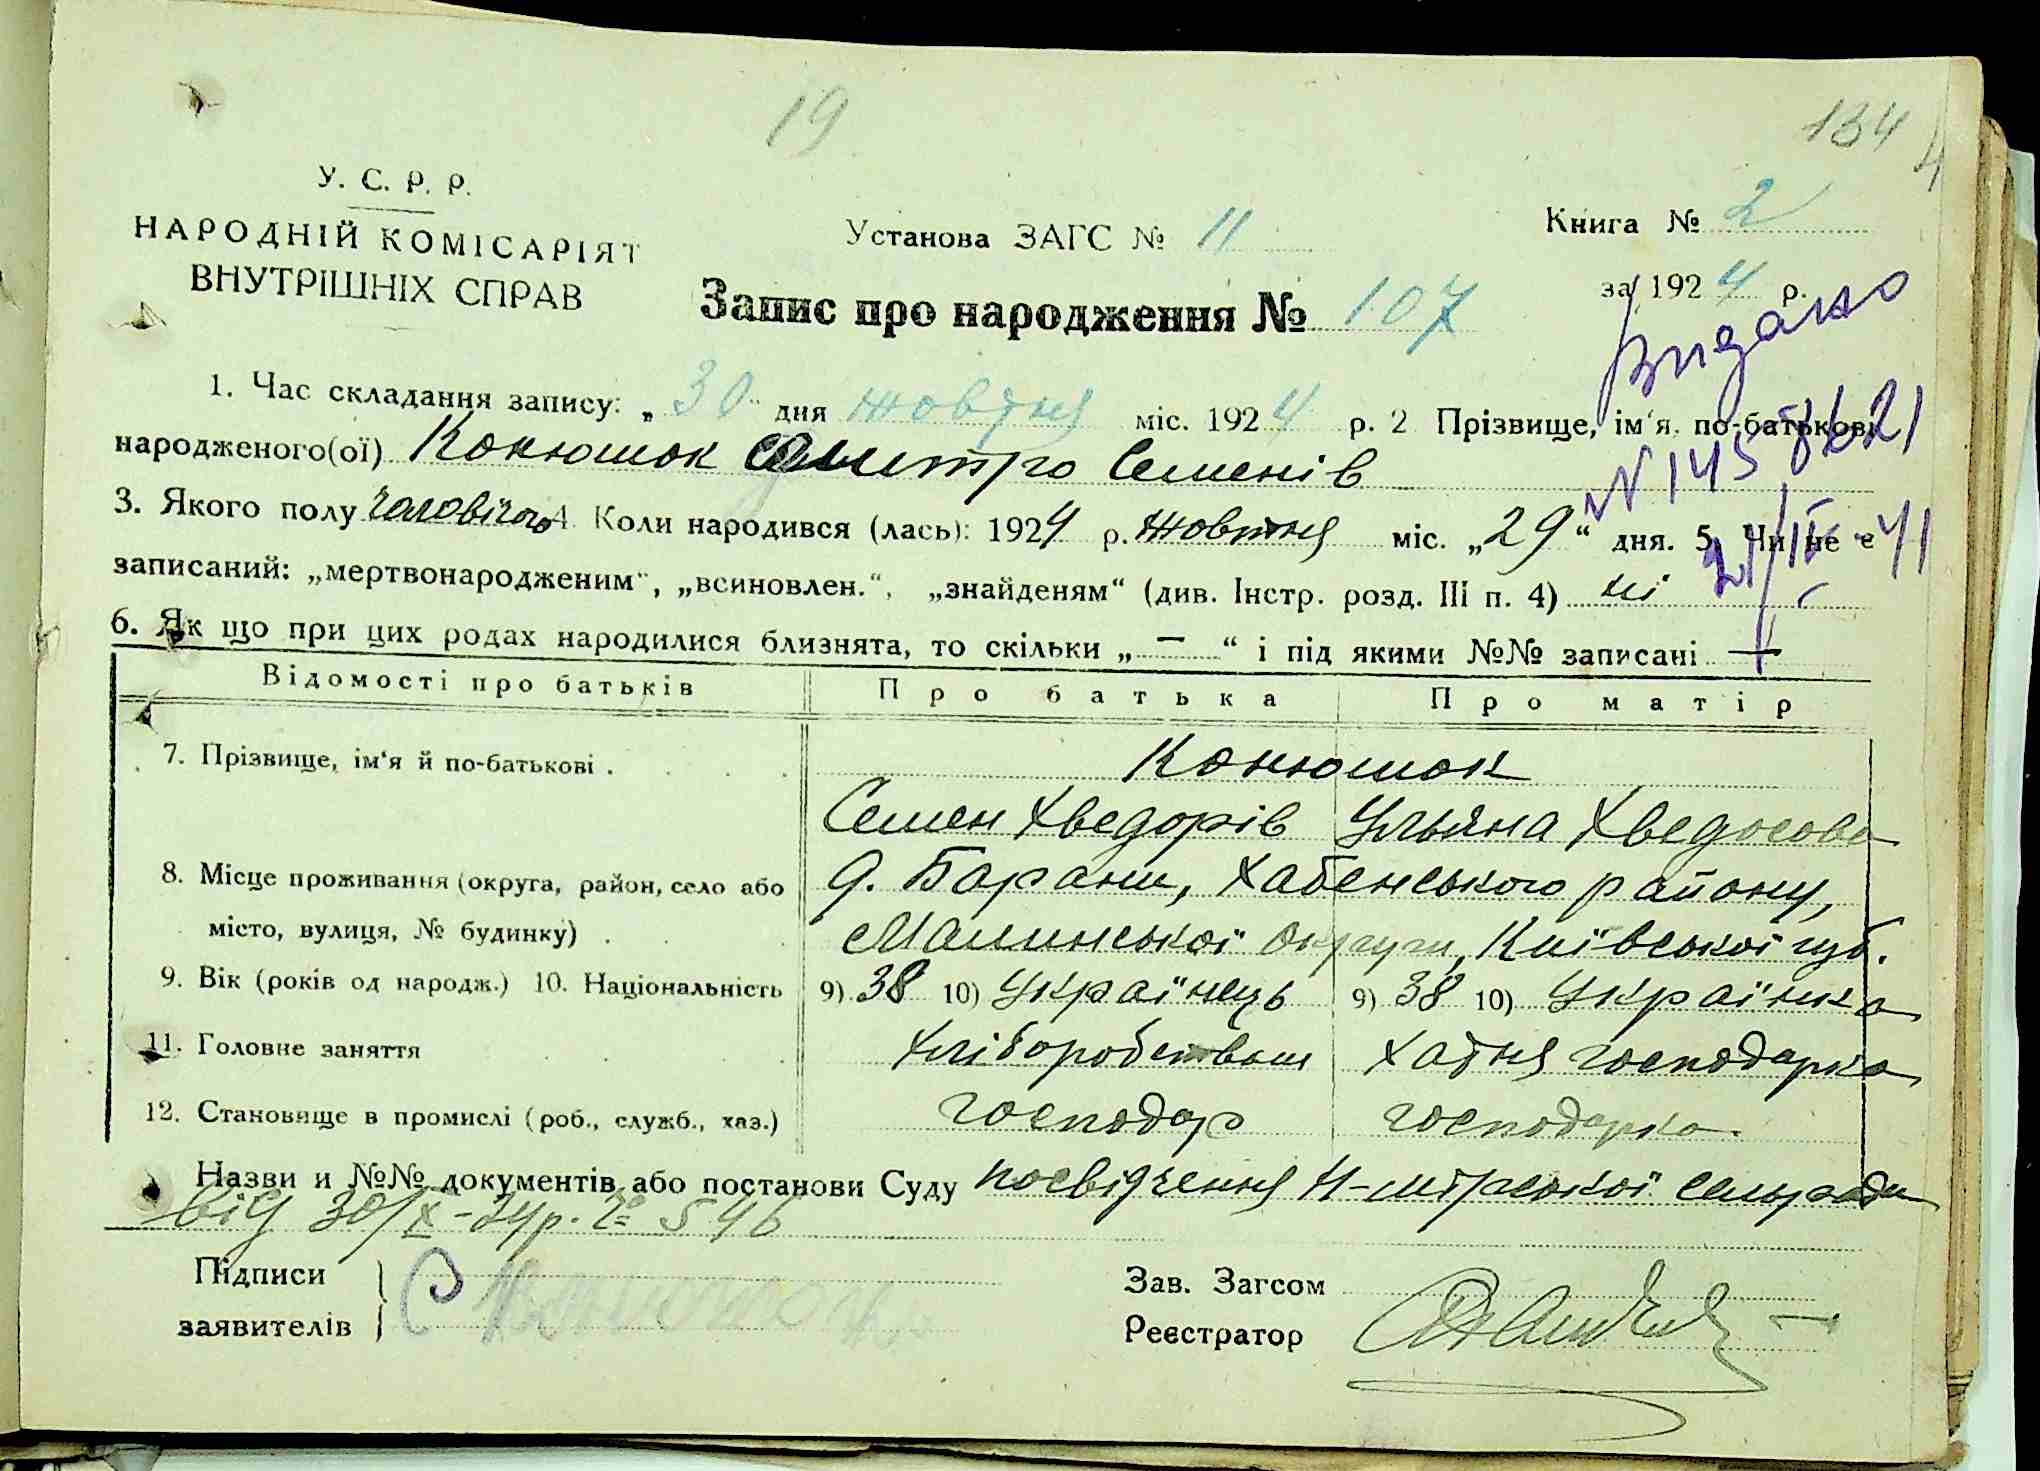 19
134
У. С. Р. Р.
НАРОДНІЙ КОМІСАРІЯТ
ВНУТРІШНІХ СПРАВ
Установа ЗАГС № 11
Книга № 2
за 1924 р.
Запис про народження № 107
Видано
1. Час складання запису: „30" дня жовтня міс. 1924 р. 2 Прізвище, ім'я, по-батькові
народженого(ої) Конюшок Дмитро Семенів
N 145
3. Якого полу чоловічого 4 Коли народився (лась): 1924 р. жовтня міс. „29" дня. 5. Чи не є
21/IV-41
записаний: „мертвонародженим", „всиновлен.", „знайденям" (див. Інстр. розд. III п. 4) ні
6. Як що при цих родах народилися близнята, то скільки „—" і під якими №№ записані —
Відомості про батьків Про батька Про матір
7. Прізвище, ім'я й по-батькові . Конюшок
Семен Хведорів Ульяна Хведосова
8. Місце проживання (округа, район, село або д. Барани, Хабенського району,
місто, вулиця, № будинку) . Малинської округи, Київської губ.
9. Вік (років од народж.) 10. Національність 9) 38 10) Українець 9) 38 10) Українка
11. Головне заняття Хліборобством Хатня господарка
12. Становище в промислі (роб., служб., хаз.) господар господарка
Назви и №№ документів або постанови Суду посвідчення сельради
від 30/X-24р. № 546
Підписи
заявителів } С Конюшок
Зав. Загсом
Реєстратор